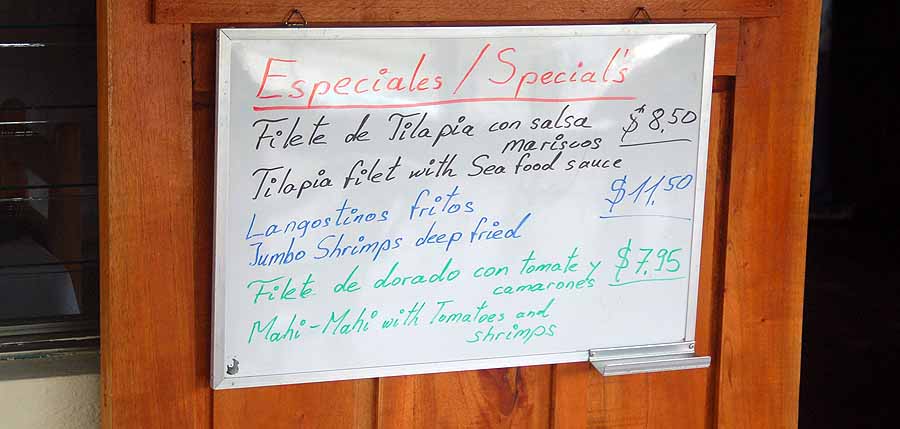 Especiales / Special's
Filete de Tilapia con salsa $8,50
mariscos
Tilapia filet with Sea food sauce
Langostinos fritos $11,50
Jumbo Shrimps deep fried
Filete de dorado con tomate y $7,95
camarones
Mahi-Mahi with Tomatoes and
shrimps